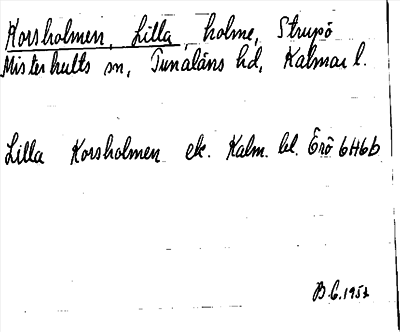 Korsholmen, Lilla, holme, Strupö
Misterhults sn, Tunaläns hd, Kalmar l.
Lilla Korsholmen ek. Kalm. bl. Erö 6H6b
B.G. 1951